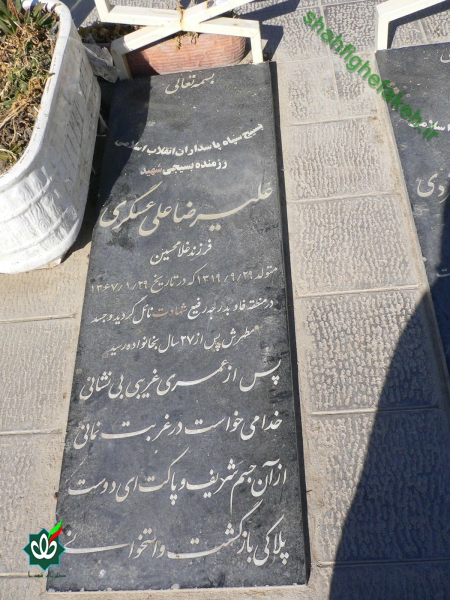 بسمه تعالی
بسیج سپاه پاسداران انقلاب اسلامی
رزمنده بسیجی شهید
علیرضا علی عسگری
فرزند غلامحسین
متولد ۱۳۱۹/۹/۲۹ که در تاریخ ۱۳۶۷/۱/۲۹
در منطقه فاو بدرجه رفیع شهادت نائل گردید و جسد
مطهرش پس از ۲۷ سال بخانواده رسید
پس از عمری غریبی بی نشانی
خدا می خواست در غربت نمانی
از آن جسم شریف و پاکت ای دوست
پلاکی بازگشت و استخوانی
shahfighefakeh.ir